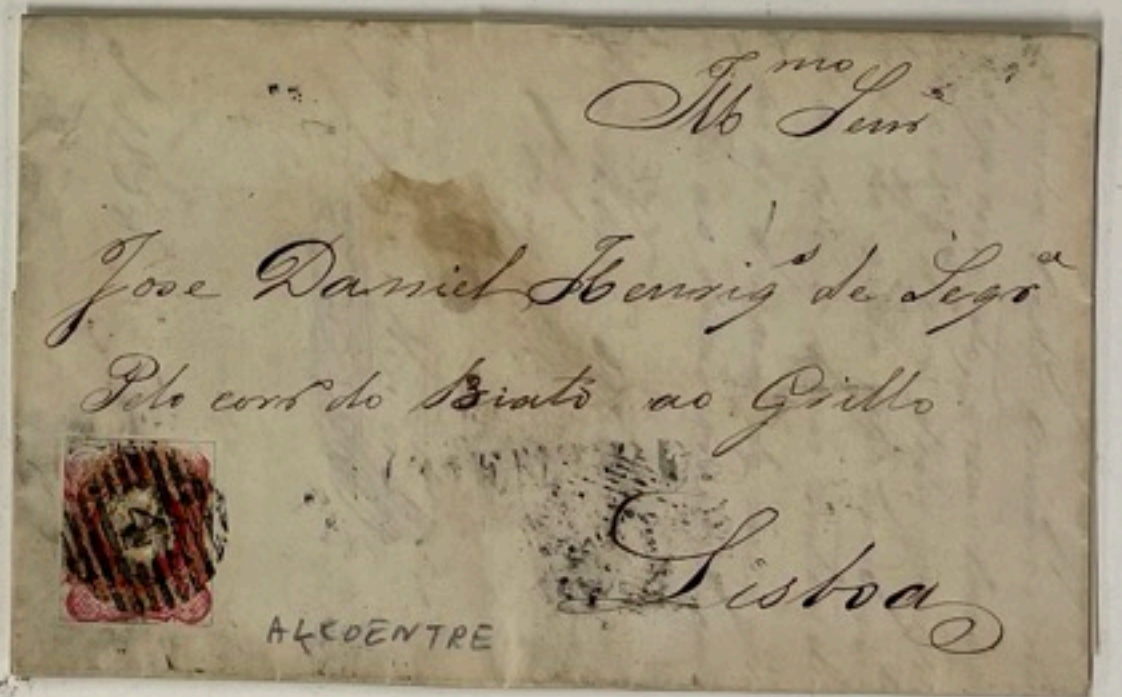 Illmo Senr
Jose Daniel Henriqs de Segra
Pelo corro do Biato ao Grillo
Lisboa
ALCOENTRE